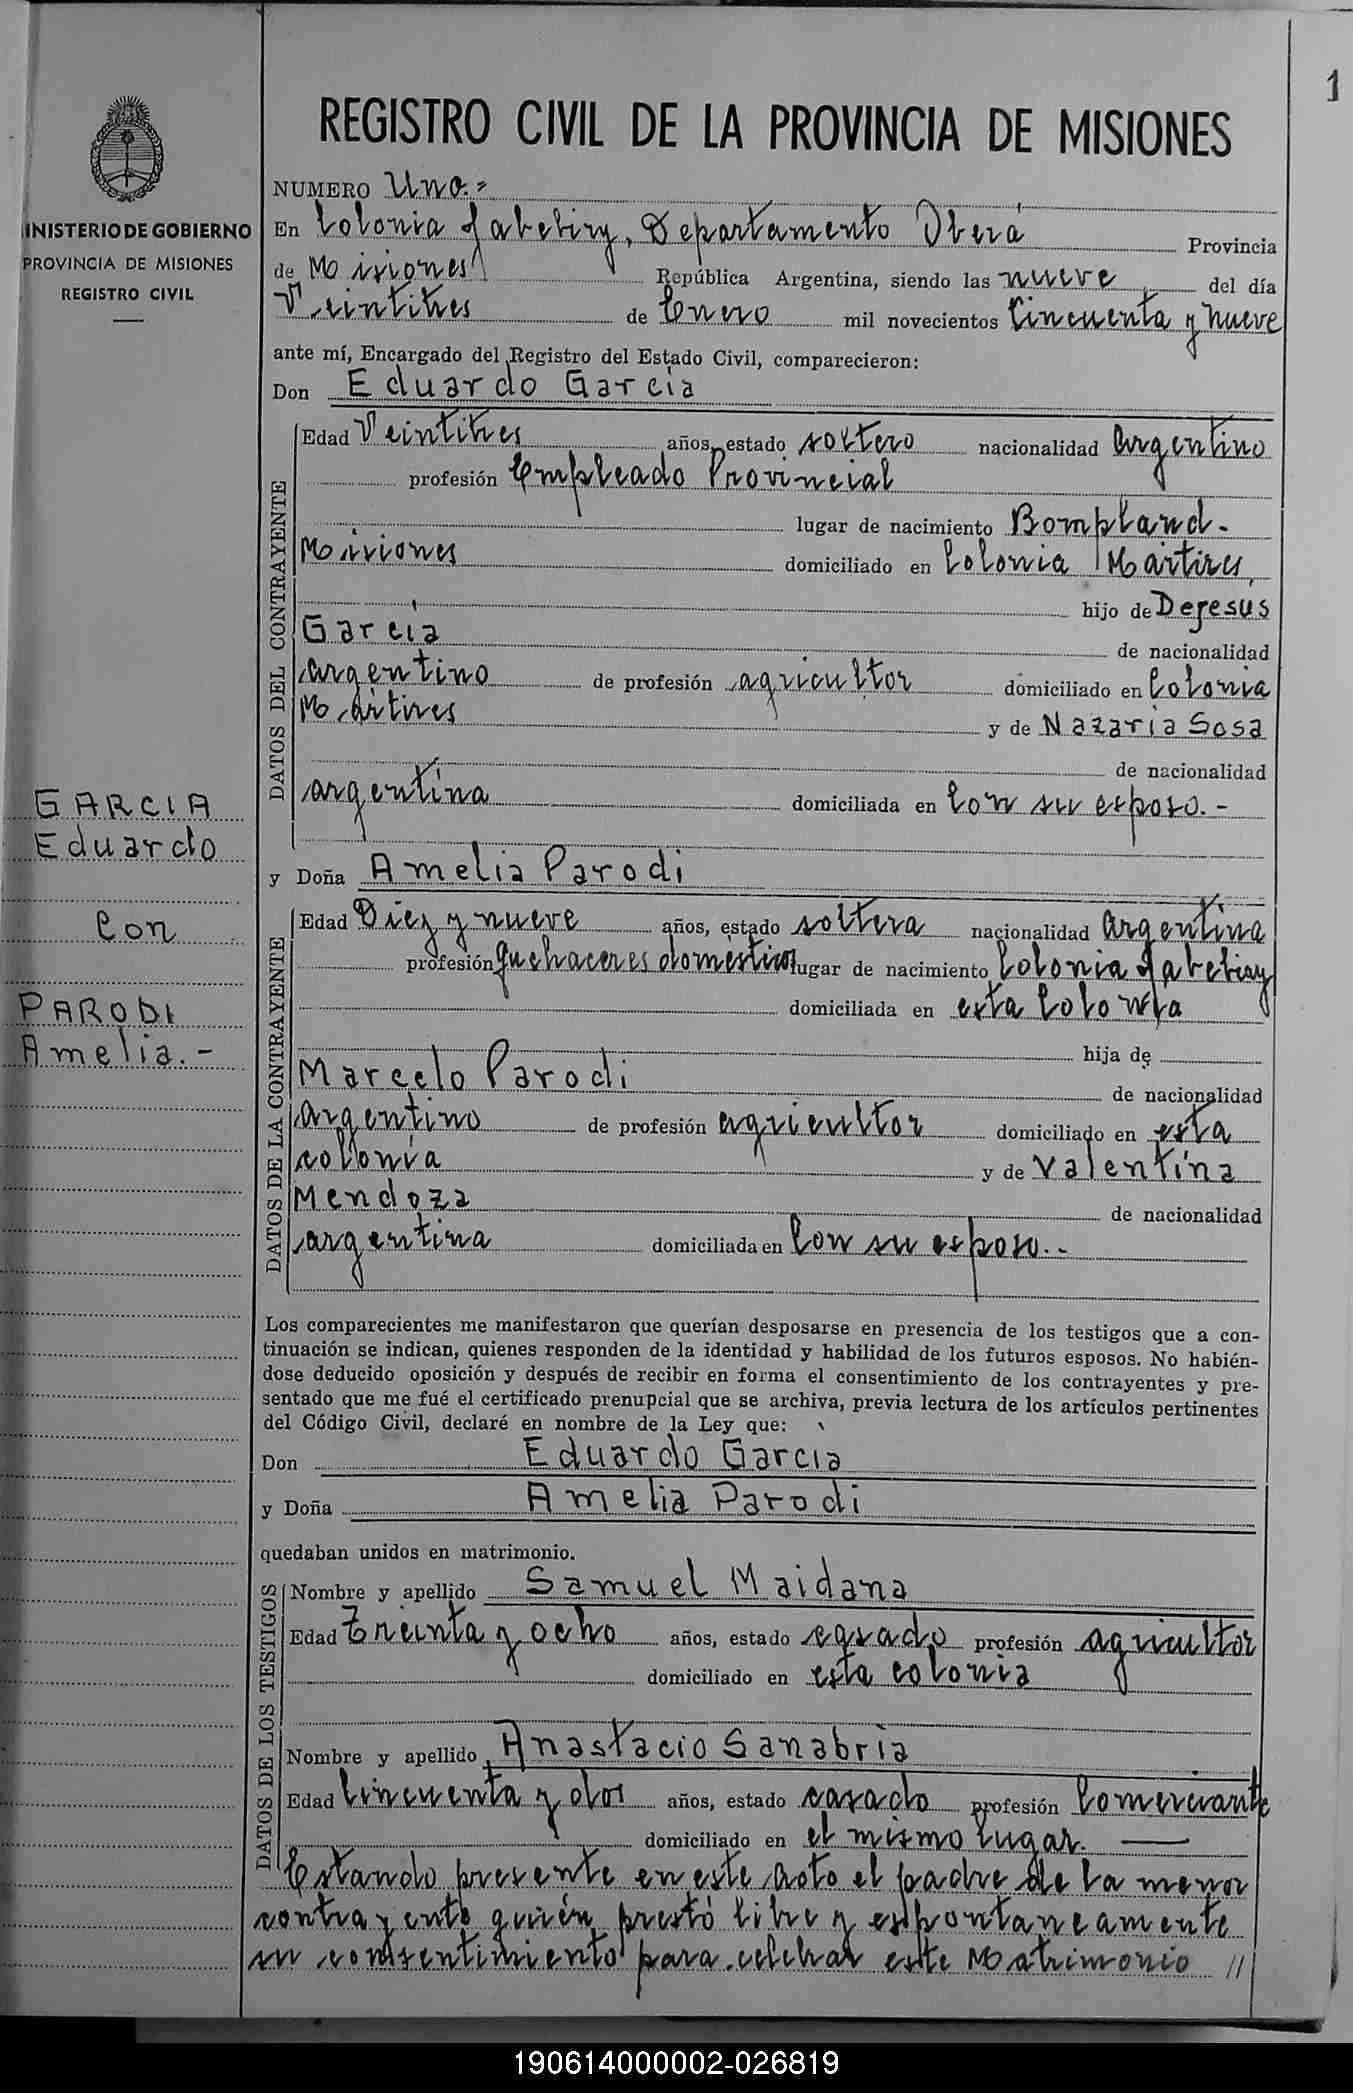 1
REGISTRO CIVIL DE LA PROVINCIA DE MISIONES
INISTERIO DE GOBIERNO
PROVINCIA DE MISIONES
REGISTRO CIVIL
GARCIA
Eduardo
Con
PARODI
Amelia.-
NUMERO Uno.=
En Colonia Yabebiry, Departamento Oberá Provincia
de Misiones República Argentina, siendo las nueve del día
Veintitres de Enero mil novecientos Cincuenta y nueve
ante mí, Encargado del Registro del Estado Civil, comparecieron:
Don Eduardo García
DATOS DEL CONTRAYENTE
Edad Veintitres años, estado soltero nacionalidad argentino
profesión Empleado Provincial
lugar de nacimiento Bompland.-
Misiones domiciliado en Colonia Mártires,
hijo de Dejesús
García de nacionalidad
argentino de profesión agricultor domiciliado en Colonia
Mártires y de Nazaria Sosa
de nacionalidad
argentina domiciliada en Con su esposo.-
y Doña Amelia Parodi
DATOS DE LA CONTRAYENTE
Edad Diez y nueve años, estado soltera nacionalidad argentina
profesión quehaceres domésticos lugar de nacimiento Colonia Yabebiry
domiciliada en esta Colonia
hija de
Marcelo Parodi de nacionalidad
argentino de profesión agricultor domiciliado en esta
colonia y de Valentina
Mendoza de nacionalidad
argentina domiciliada en Con su esposo.-
Los comparecientes me manifestaron que querían desposarse en presencia de los testigos que a con-
tinuación se indican, quienes responden de la identidad y habilidad de los futuros esposos. No habién-
dose deducido oposición y después de recibir en forma el consentimiento de los contrayentes y pre-
sentado que me fué el certificado prenupcial que se archiva, previa lectura de los artículos pertinentes
del Código Civil, declaré en nombre de la Ley que:
Don Eduardo García
y Doña Amelia Parodi
quedaban unidos en matrimonio.
DATOS DE LOS TESTIGOS
Nombre y apellido Samuel Maidana
Edad Treinta y ocho años, estado casado profesión agricultor
domiciliado en esta colonia
Nombre y apellido Anastacio Sanabria
Edad Cincuenta y dos años, estado casado profesión Comerciante
domiciliado en el mismo lugar. —
Estando presente en este acto el padre de la menor
contrayente quién prestó libre y espontaneamente
su consentimiento para celebrar este Matrimonio //
190614000002-026819